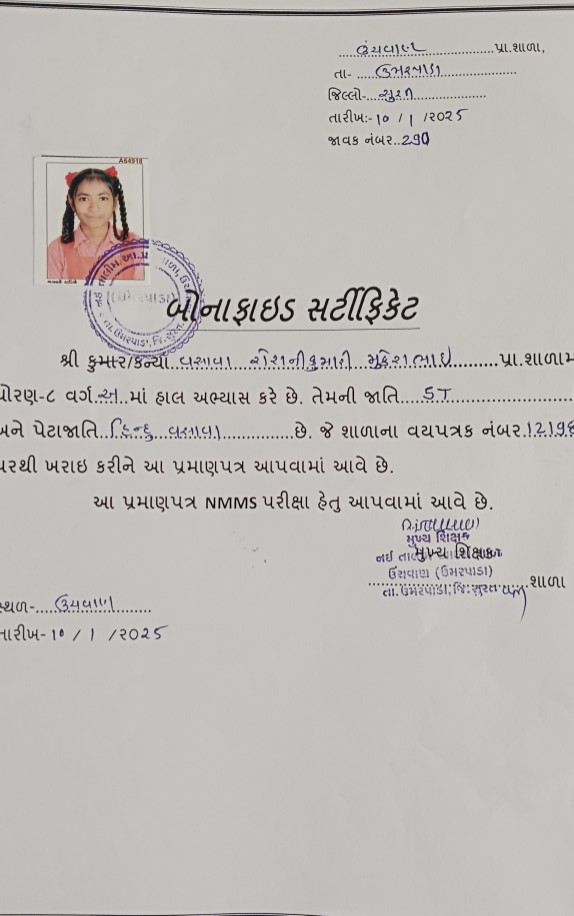 ઉચવાણ પ્રા.શાળા,
તા- ઉમરપાડા
જિલ્લો- સુરત
તારીખ:- ૧૦ / ૧ / ૨૦૨૫
જાવક નંબર..290
A64918
બોનાફાઇડ સર્ટીફિકેટ
શ્રી કુમાર/કન્યા વસાવા રોશનીકુમારી મુકેશભાઇ પ્રા.શાળામ
ધોરણ-૮ વર્ગ અ માં હાલ અભ્યાસ કરે છે. તેમની જાતિ ST
અને પેટાજાતિ હિન્દુ વસાવા છે. જે શાળાના વયપત્રક નંબર
પરથી ખરાઇ કરીને આ પ્રમાણપત્ર આપવામાં આવે છે.
આ પ્રમાણપત્ર NMMS પરીક્ષા હેતુ આપવામાં આવે છે.
મુખ્ય શિક્ષક
મુખ્ય શિક્ષક
ઉચવાણ (ઉમરપાડા)
તા. ઉમરપાડા, જિ: સુરત શાળા
સ્થળ- ઉચવાણ
તારીખ- ૧૦ / ૧ / ૨૦૨૫